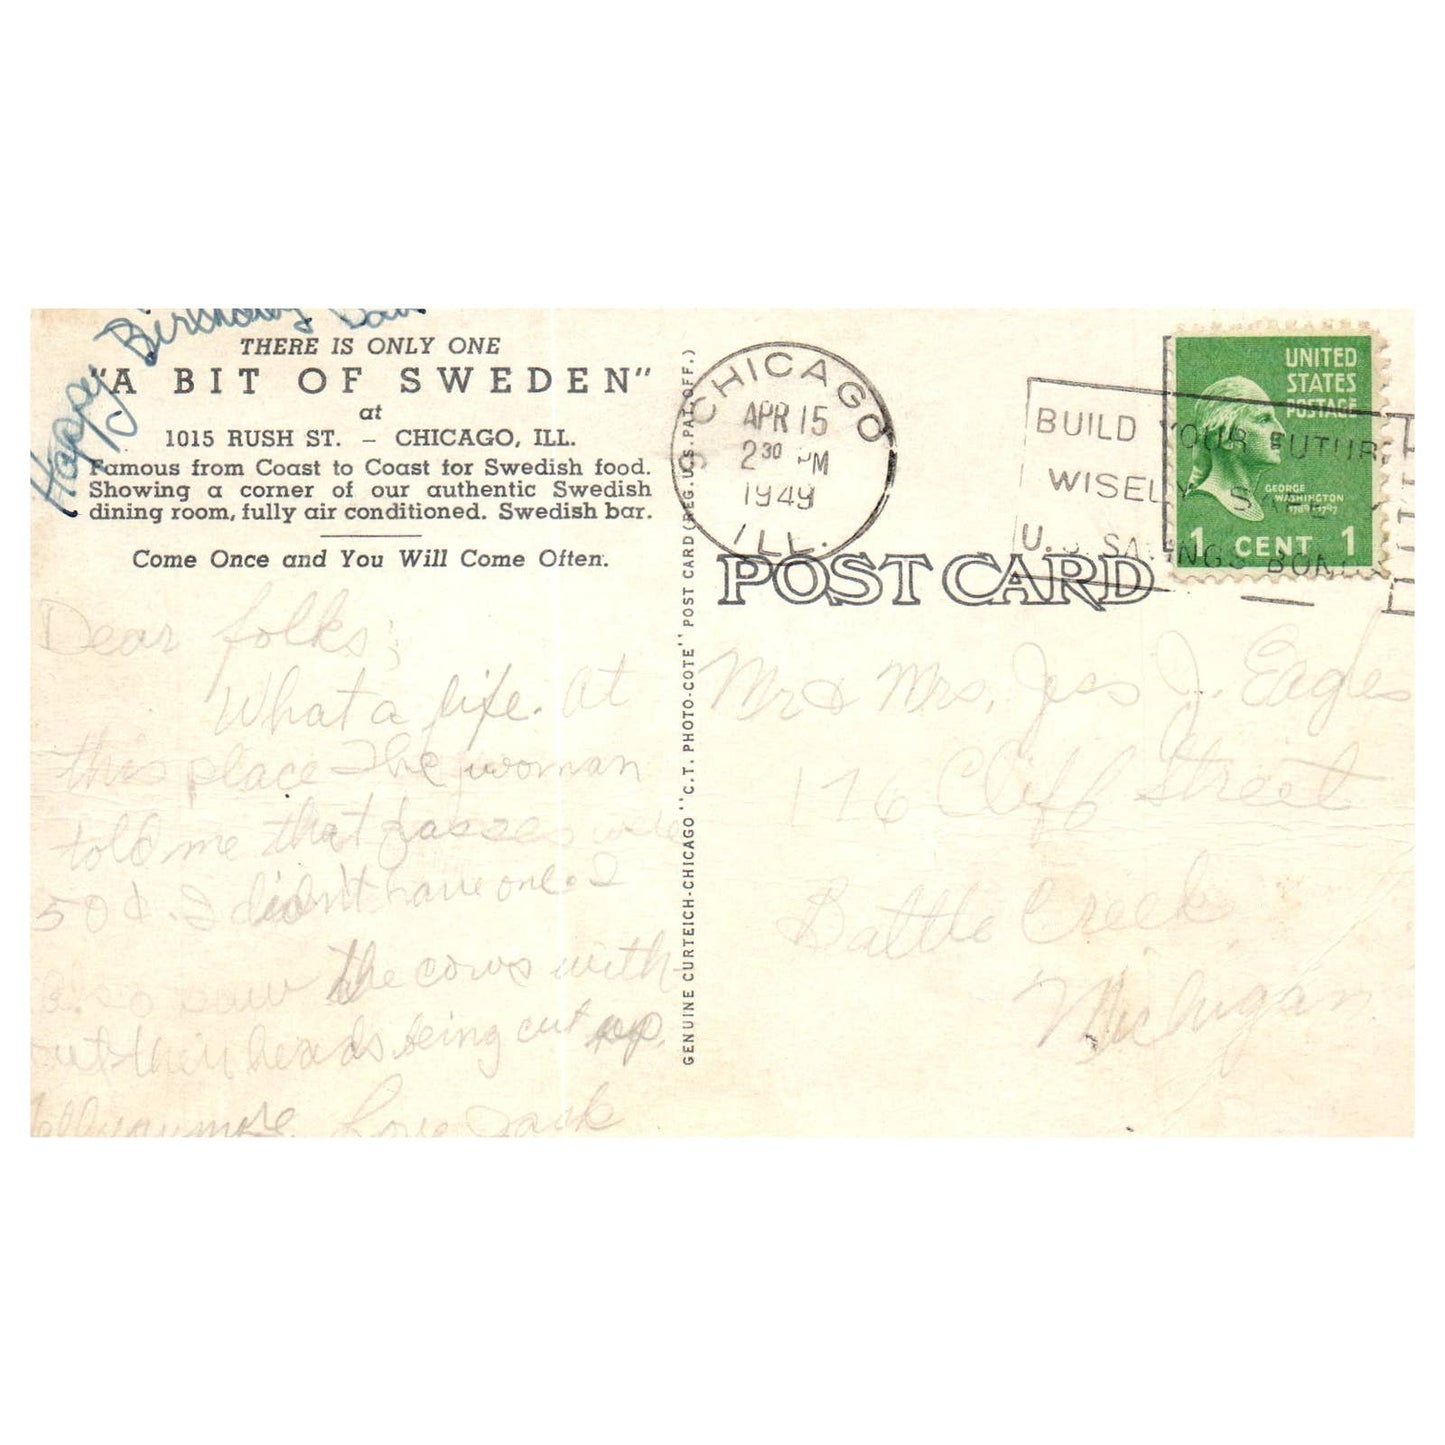 Happy Birthday
THERE IS ONLY ONE
"A BIT OF SWEDEN"
at
1015 RUSH ST. – CHICAGO, ILL.
Famous from Coast to Coast for Swedish food.
Showing a corner of our authentic Swedish
dining room, fully air conditioned. Swedish bar.
Come Once and You Will Come Often.
Dear folks;
What a life. At
this place the woman
told me that glasses were
50¢. I didn't have one. I
also saw the cows with-
out their heads being cut up.
Love Jack
GENUINE CURTEICH-CHICAGO "C.T. PHOTO-COTE" POST CARD (REG. U.S. PAT. OFF.)
CHICAGO
APR 15
2 30 PM
1949
ILL.
BUILD YOUR FUTURE
WISELY SAFELY
U.S. SAVINGS BONDS
UNITED
STATES
POSTAGE
GEORGE
WASHINGTON
1789 1797
1 CENT 1
POST CARD
Mr & Mrs. Jess J. Eagles
176 Cliff Street
Battle Creek
Michigan